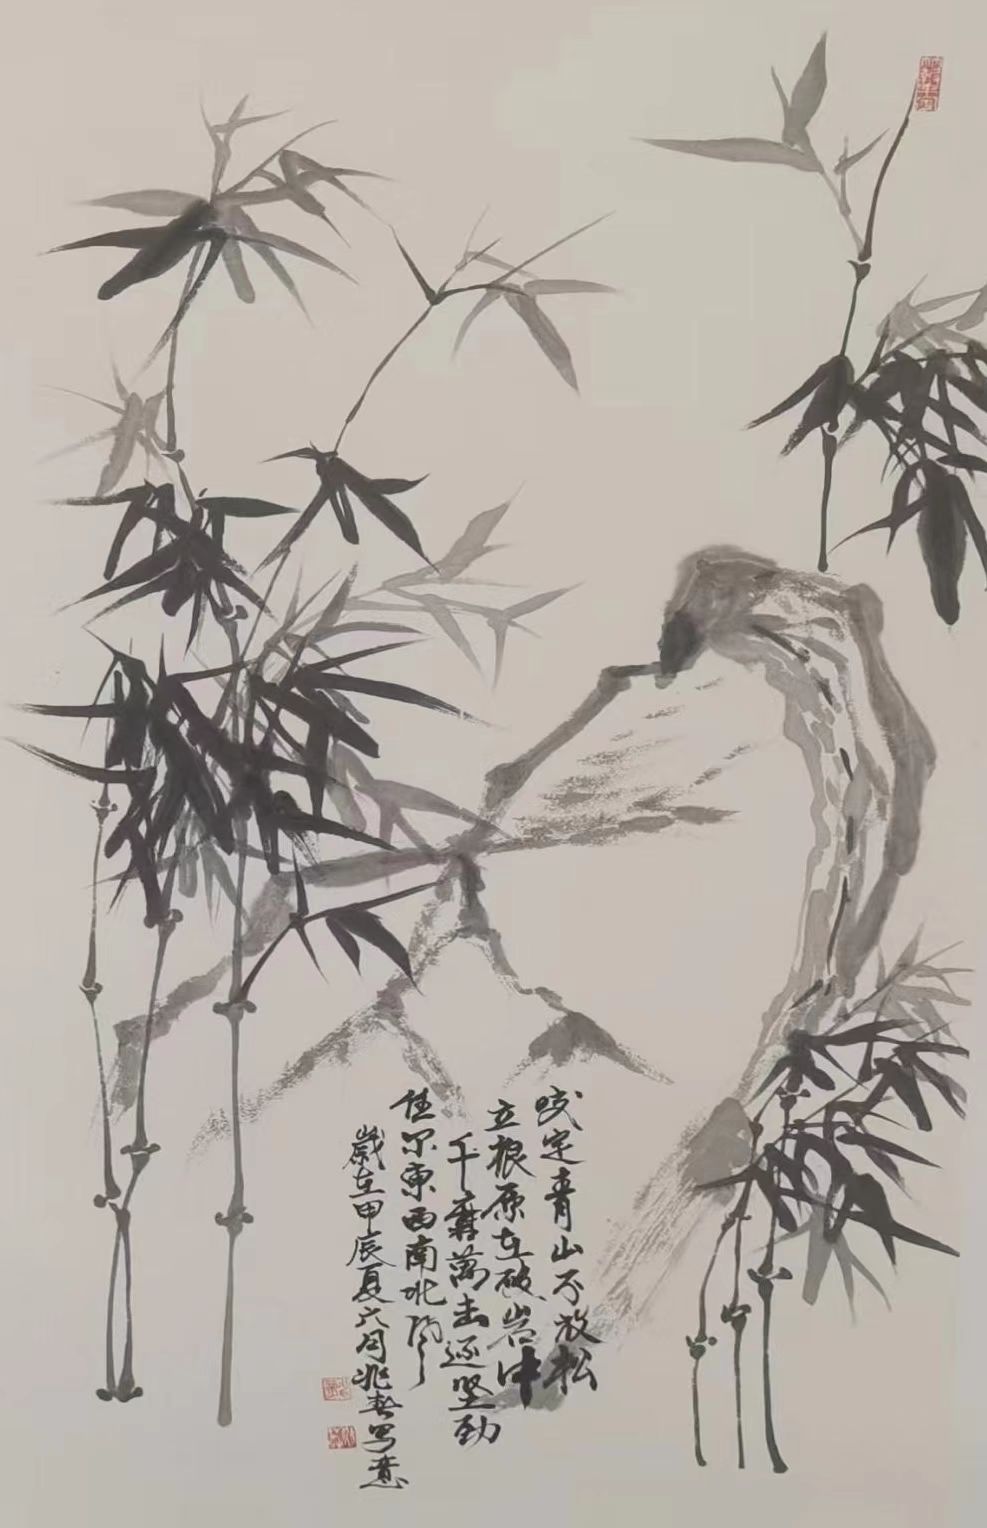 咬定青山不放松
立根原在破岩中
千磨萬击还坚劲
任尔东西南北风
歲在甲辰夏六月兆春写意